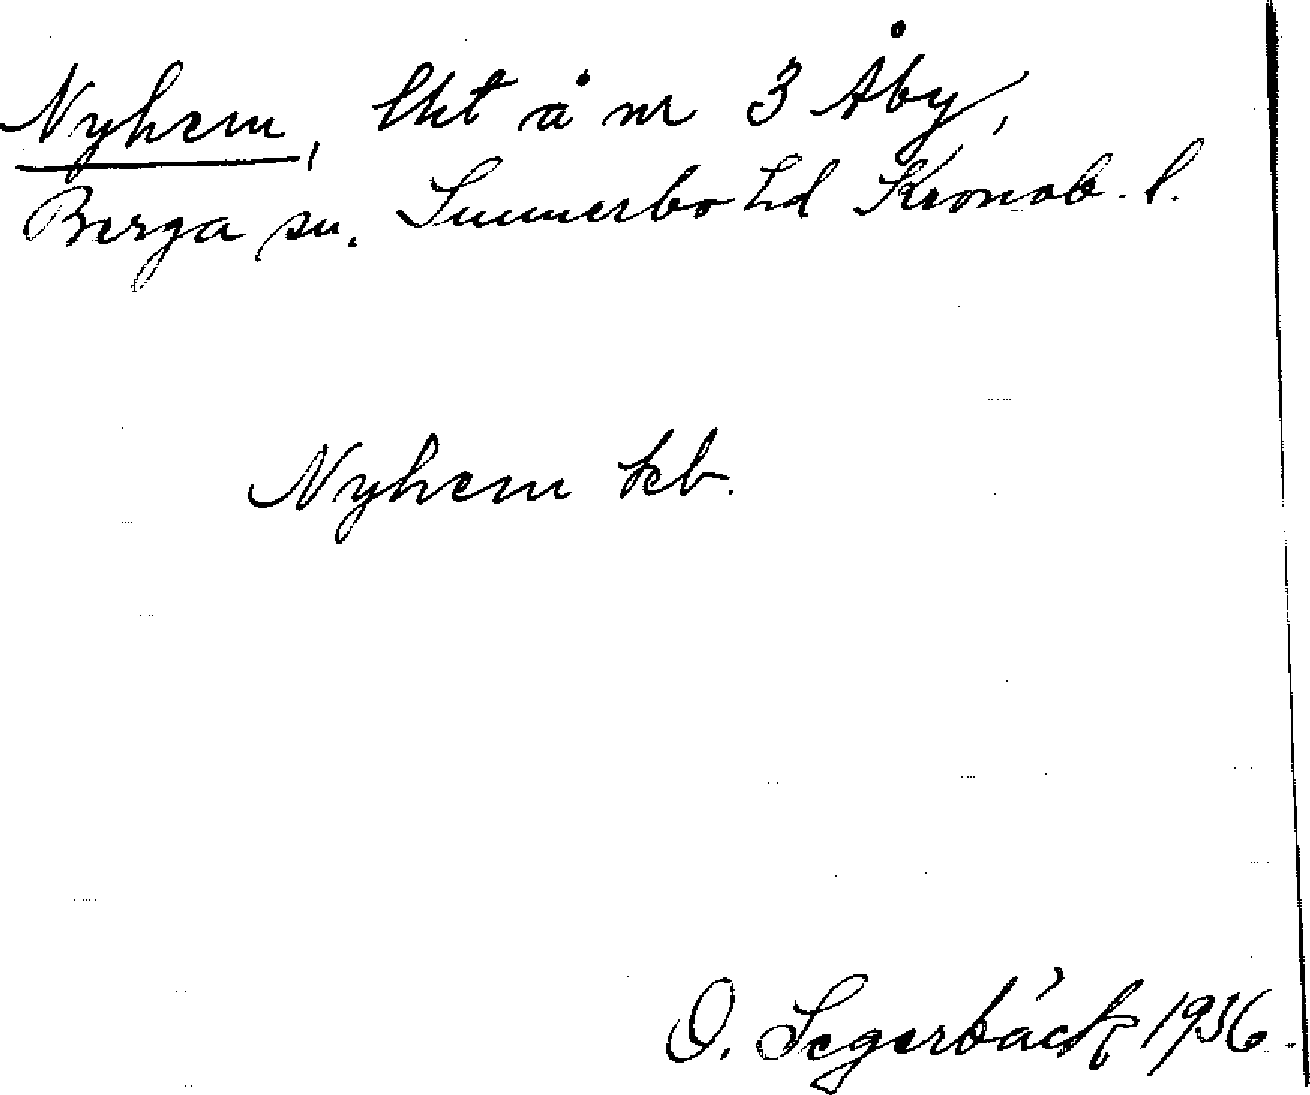 Nyhem, lht å nr 3 Åby,
Berga sn. Sunnerbo hd Kronob. l.
Nyhem kb.
O. Segerbäck 1936.